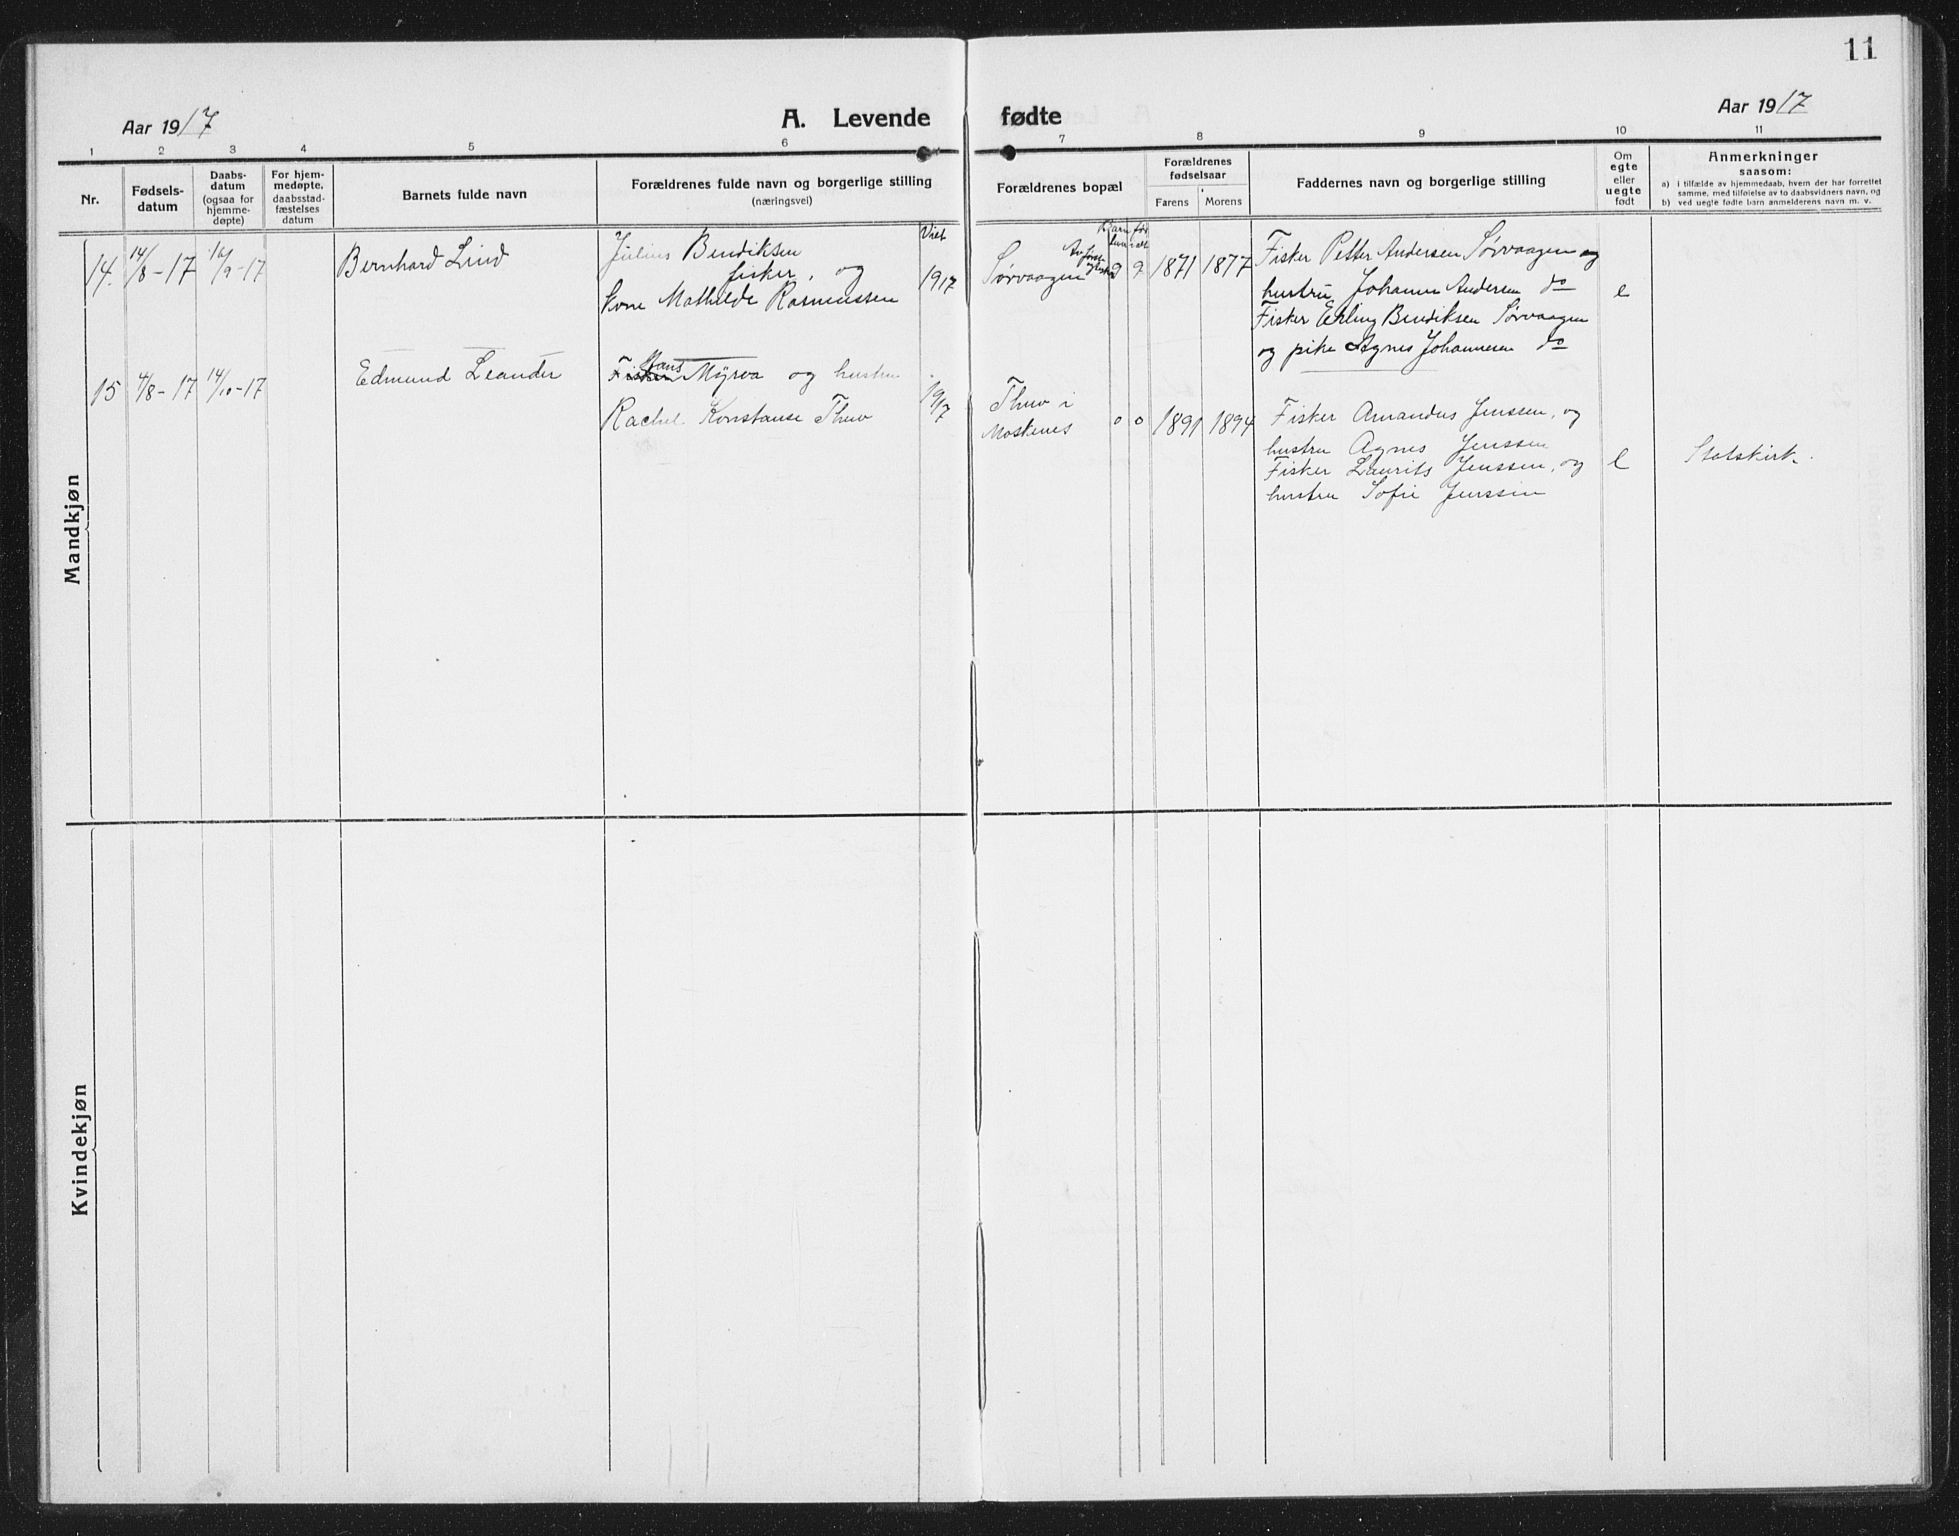 11
Aar 1917
A. Levende fødte
Aar 1917
1 2 3 4 5 6 7 8 9 10 11
Nr.
Fødsels-
datum
Daabs-
datum
(ogsaa for
hjemme-
døpte)
For hjem-
medøpte,
daabsstad-
fæstelses
datum
Barnets fulde navn
Forældrenes fulde navn og borgerlige stilling
(næringsvei)
Forældrenes bopæl
Forældrenes
fødselsaar
Farens Morens
Faddernes navn og borgerlige stilling
Om
egte
eller
uegte
født
Anmerkninger
saasom:
a) i tilfælde av hjemmedaab, hvem der har forrettet
samme, med tilføielse av to daabsvidners navn, og
b) ved uegte fødte barn anmelderens navn m. v.
Mandkjøn
14. 14/8-17 16/9-17
Bernhard Lind
Julius Bendiksen
fisker, og
kone Mathilde Rasmussen
Viet
1917
Sørvaagen
2 9
1871 1877
Fisker Petter Andersen Sørvaagen og
hustru Johanna Andersen do
Fisker Erling Bendiksen Sørvaagen
og pike Agnes Johannesen do
e
15 4/8-17 14/10-17
Edmund Leander
Hans
Fisker Myrva og hustru
Rachel Konstanse Thuv
1917
Thuv i
Moskenes
0 0
1891 1894
Fisker Amandus Jenssen, og
hustru Agnes Jenssen
Fisker Laurits Jenssen, og
hustru Sofie Jenssen
e
Statskirk.
Kvindekjøn